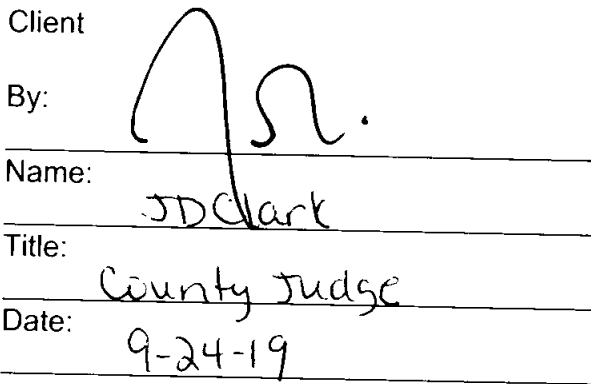 Client
By:
Name: JD Clark
Title: County Judge
Date: 9-24-19